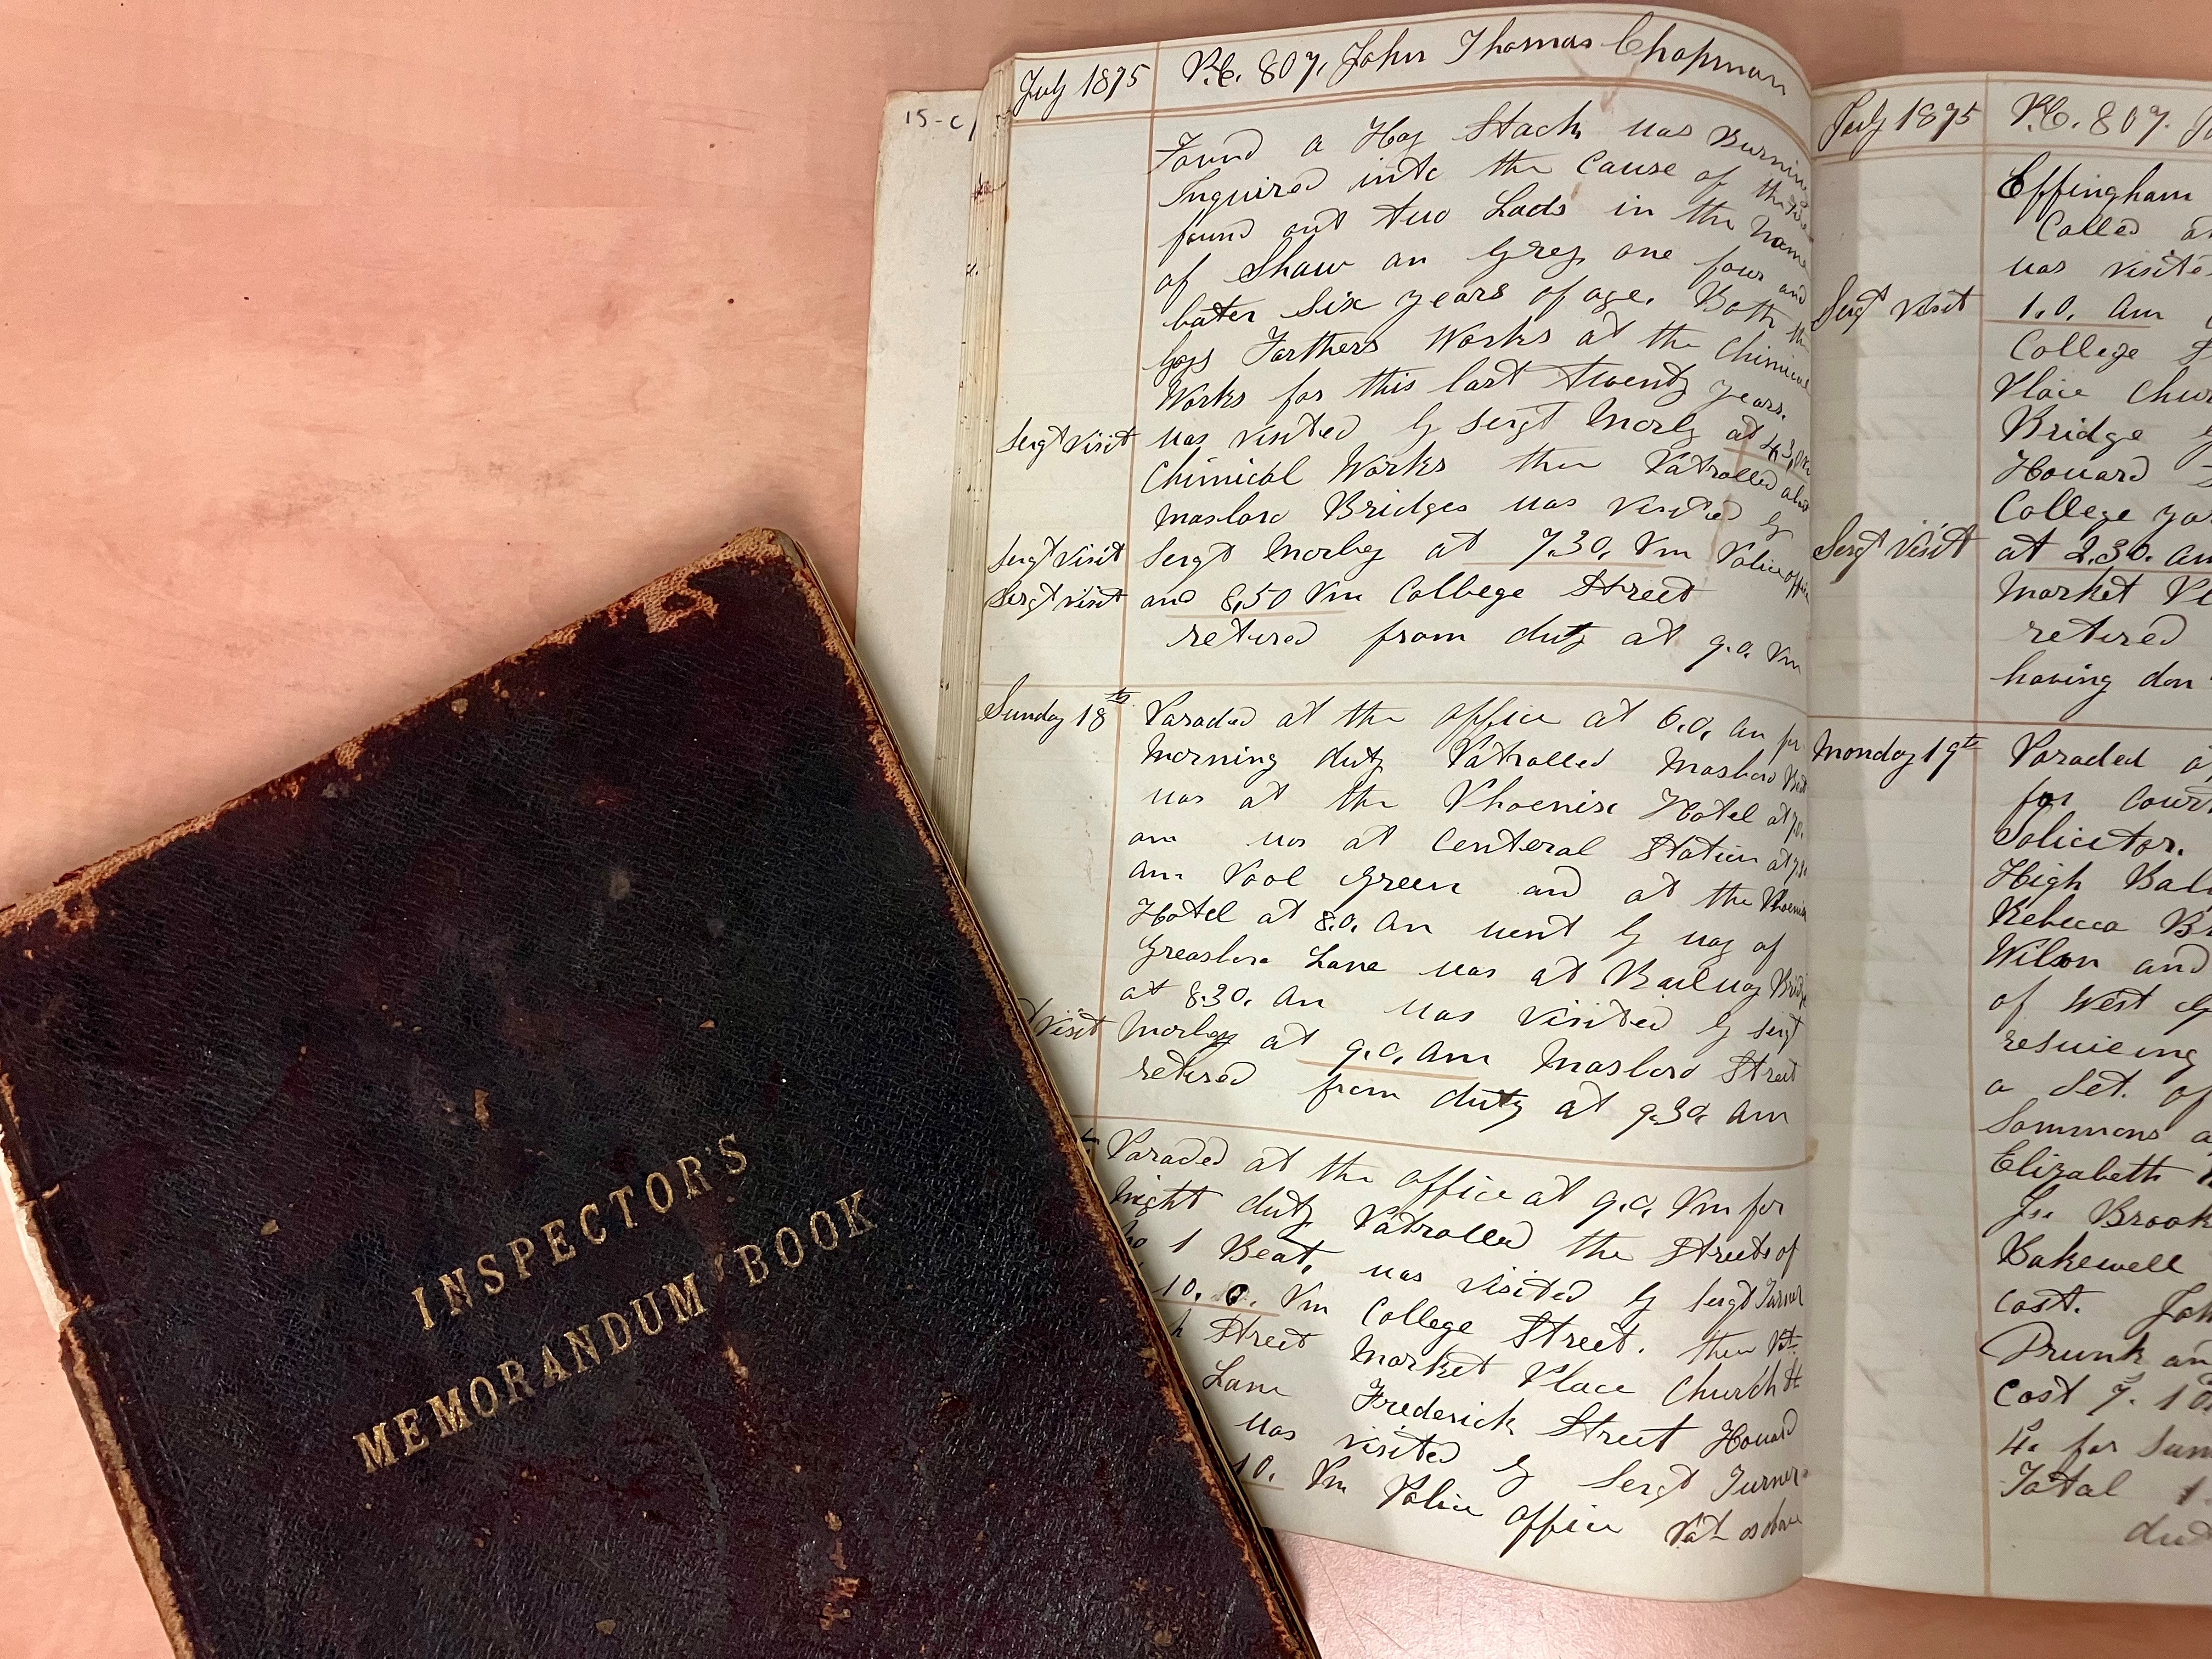 INSPECTOR'S
MEMORANDUM BOOK
15-c/
July 1875
P.C. 807, John Thomas Chapman
Found a Hay Stack was Burning
Inquired into the Cause of the
found out two Lads in the Name
of Shaw an Grey one four and
later Six years of age. Both the
boys Farthers Works at the Chimical
Works for this last twenty years.
Sergt Visit
was visited by Sergt Morley at
Chimical Works then Patrolled
Masboro Bridges was visited by
Sergt Visit
Sergt Morley at 7.30. Pm Police office
Sergt Visit
and 8.50 Pm College Street
retired from duty at 9.0. Pm
Sunday 18th
Paraded at the office at 6.0. am for
Morning duty Patrolled Masboro
was at the Phoenix Hotel at
am was at Centeral Station at
am Pool Green and at the Phoenix
Hotel at 8.0. am went by way of
Greasbro Lane was at Railway
at 8.30. am was visited by Sergt
Visit
Morley at 9.0. am Masboro Street
retired from duty at 9.30 am
Paraded at the office at 9.0. Pm for
Night duty Patrolled the Streets of
No 1 Beat, was visited by Sergt Turner
10.0. Pm College Street. then Pat
Street Market Place Church St
Lane Frederick Street Howard
was visited by Sergt Turner
10. Pm Police office Pat as above
July 1875
P.C. 807. J
Effingham
Called
was visite
Sergt Visit
1.0. am
College S
Place Chur
Bridge
Howard S
College ya
Sergt Visit
at 2.30. am
Market Pl
retired
having don
Monday 19th
Paraded a
for Court
Solicitor.
High Bal
Rebecca Br
Wilson and
of West G
rescueing
a Set. of
Sommons a
Elizabeth
Js. Brook
Bakewell
cost. Joh
Drunk an
cost 7. 10
4s for Sum
Total 1
dut